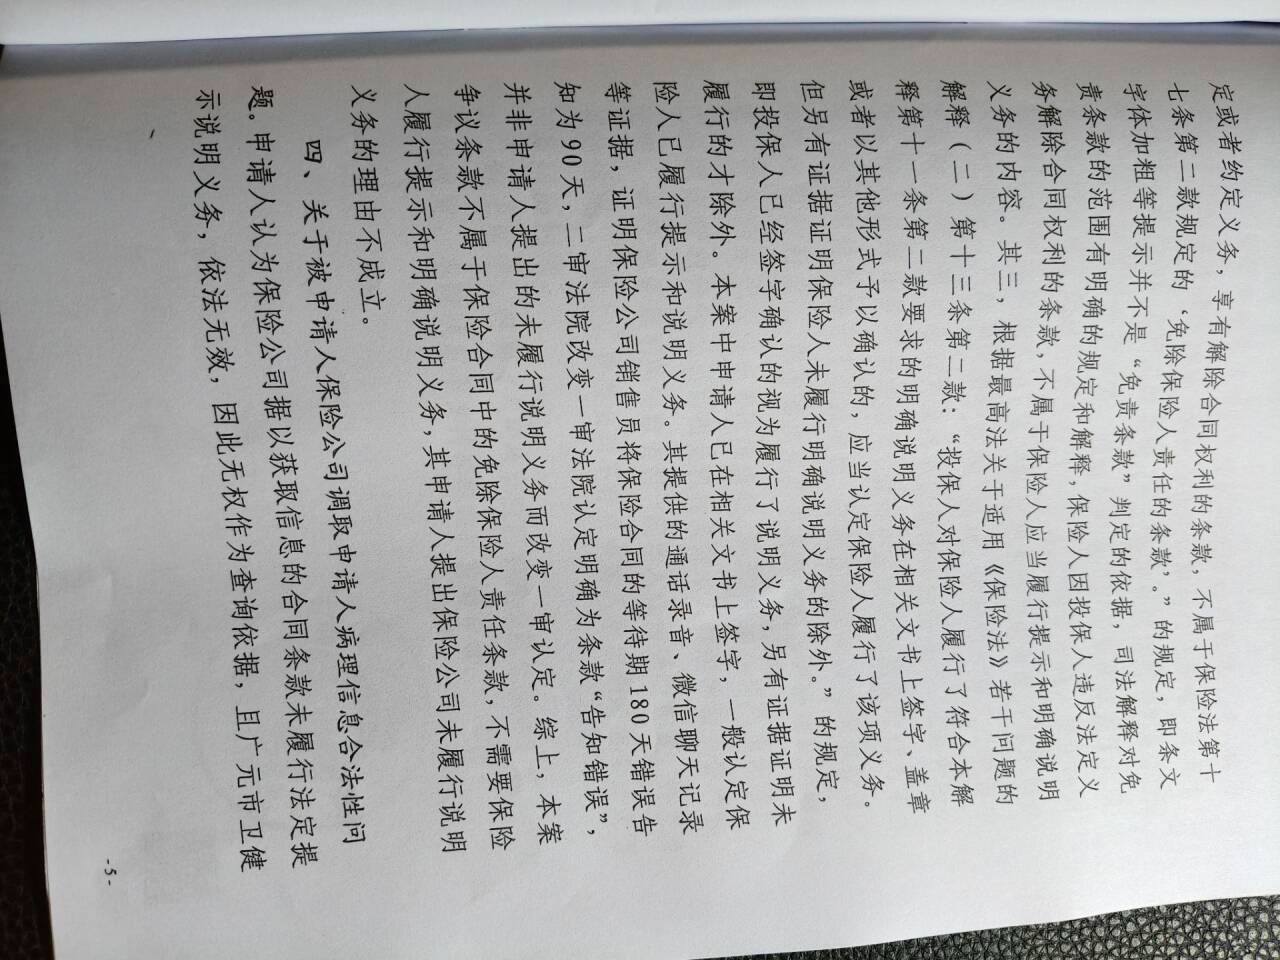 定或者约定义务，享有解除合同权利的条款，不属于保险法第十
七条第二款规定的‘免除保险人责任的条款’。”的规定，即条文
字体加粗等提示并不是“免责条款”判定的依据，司法解释对免
责条款的范围有明确的规定和解释，保险人因投保人违反法定义
务解除合同权利的条款，不属于保险人应当履行提示和明确说明
义务的内容。其三，根据最高法关于适用《保险法》若干问题的
解释（二）第十三条第二款：“投保人对保险人履行了符合本解
释第十一条第二款要求的明确说明义务在相关文书上签字、盖章
或者以其他形式予以确认的，应当认定保险人履行了该项义务。
但另有证据证明保险人未履行明确说明义务的除外。”的规定，
即投保人已经签字确认的视为履行了说明义务，另有证据证明未
履行的才除外。本案中申请人已在相关文书上签字，一般认定保
险人已履行提示和说明义务。其提供的通话录音、微信聊天记录
等证据，证明保险公司销售员将保险合同的等待期180天错误告
知为90天，二审法院改变一审法院认定明确为条款“告知错误”，
并非申请人提出的未履行说明义务而改变一审认定。综上，本案
争议条款不属于保险合同中的免除保险人责任条款，不需要保险
人履行提示和明确说明义务，其申请人提出保险公司未履行说明
义务的理由不成立。
四、关于被申请人保险公司调取申请人病理信息合法性问
题。申请人认为保险公司据以获取信息的合同条款未履行法定提
示说明义务，依法无效，因此无权作为查询依据，且广元市卫健
-5-